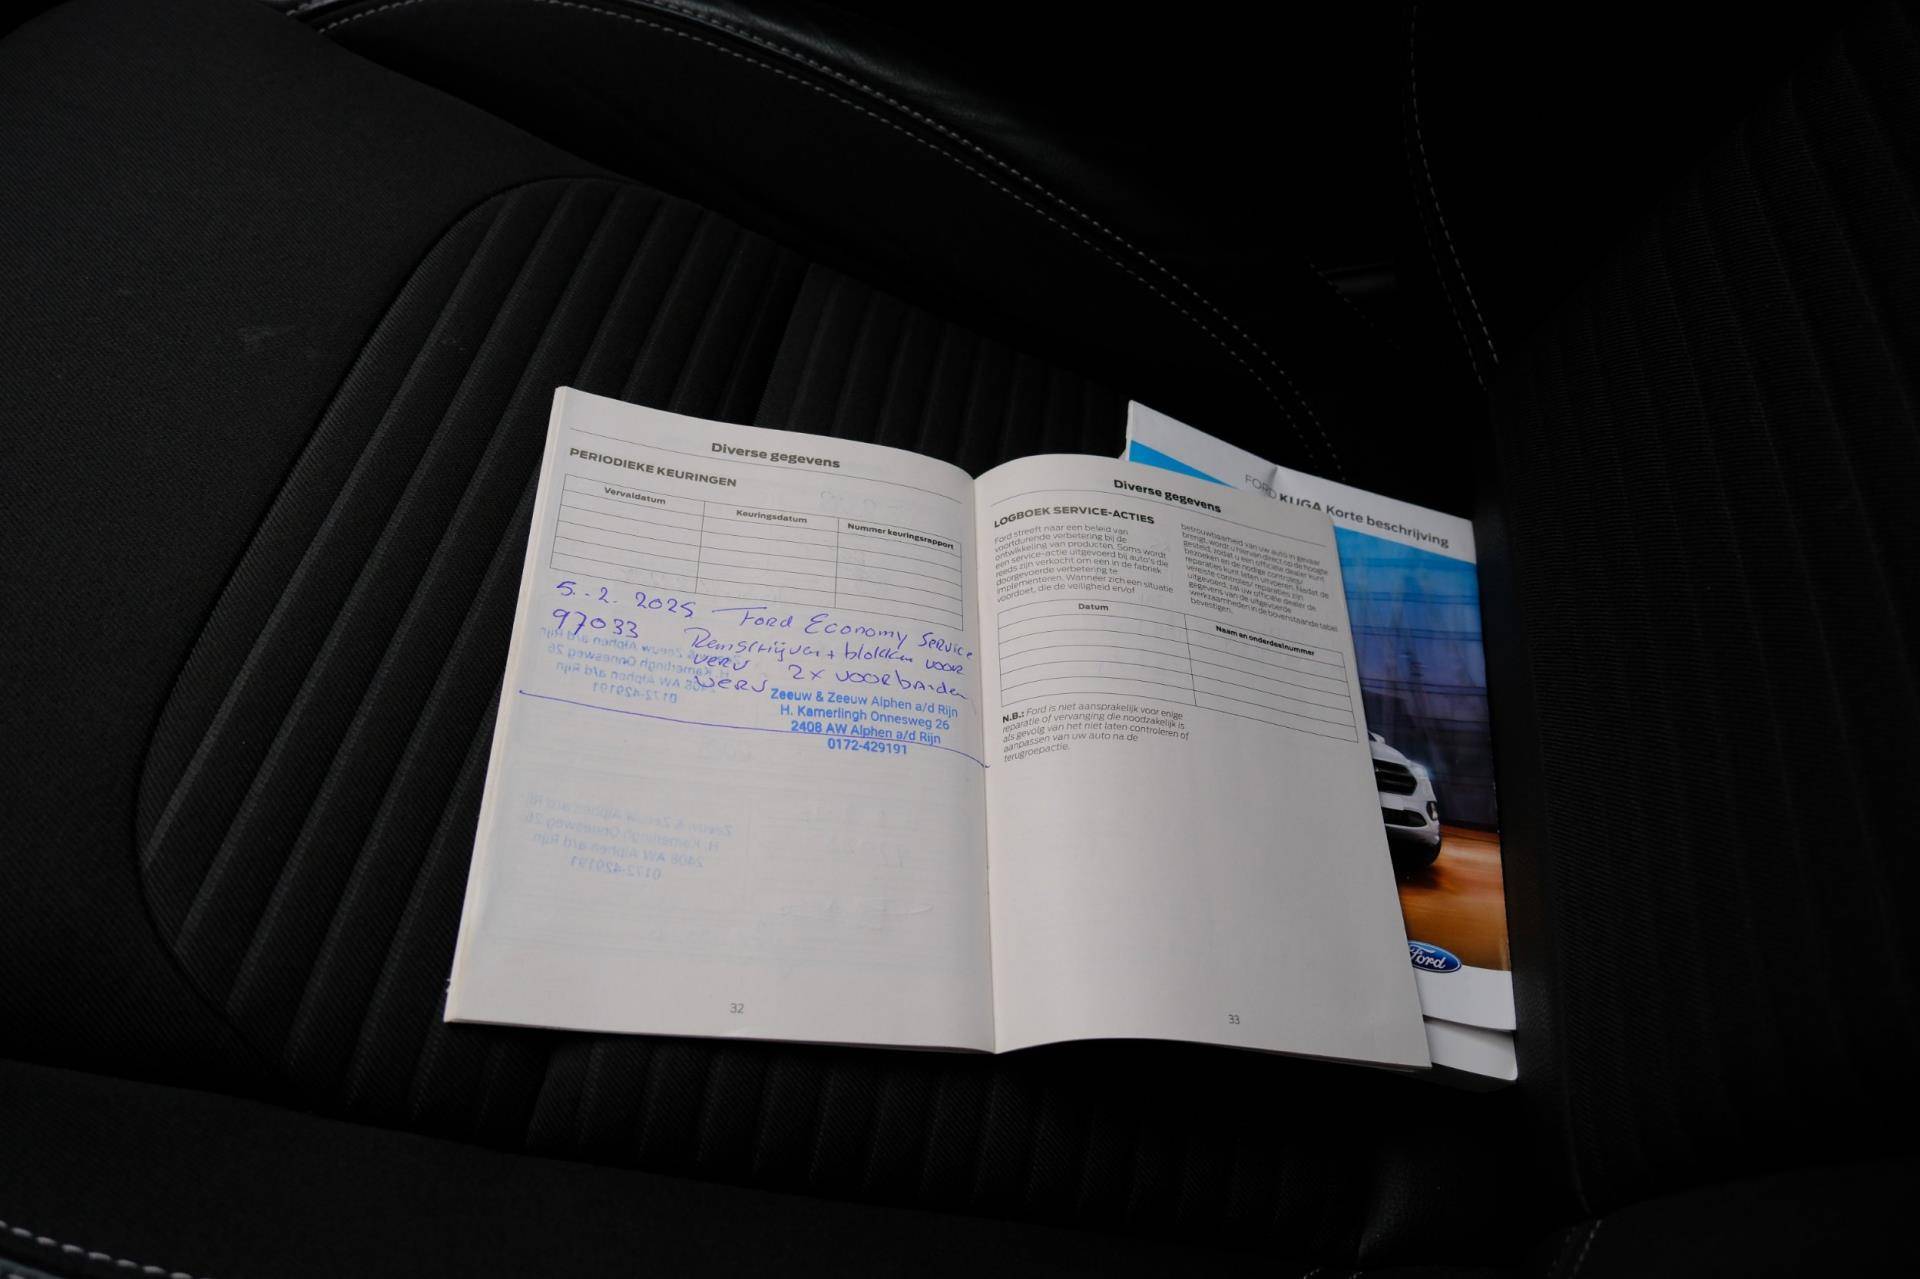 Diverse gegevens
PERIODIEKE KEURINGEN
Vervaldatum
Keuringsdatum
Nummer keuringsrapport
5.-2. 2025 Ford Economy Service
97033 Remschijven + blokken voor
verv 2x voorbanden
verv
Zeeuw & Zeeuw Alphen a/d Rijn
H. Kamerlingh Onnesweg 26
2408 AW Alphen a/d Rijn
0172-429191
Zeeuw & Zeeuw Alphen a/d Rijn
H. Kamerlingh Onnesweg 26
2408 AW Alphen a/d Rijn
0172-429191
Zeeuw & Zeeuw Alphen a/d Rijn
H. Kamerlingh Onnesweg 26
2408 AW Alphen a/d Rijn
0172-429191
32
Diverse gegevens
LOGBOEK SERVICE-ACTIES
Ford streeft naar een beleid van
voortdurende verbetering bij de
ontwikkeling van producten. Soms wordt
een service-actie uitgevoerd bij auto's die
reeds zijn verkocht om een in de fabriek
doorgevoerde verbetering te
implementeren. Wanneer zich een situatie
voordoet, die de veiligheid en/of
betrouwbaarheid van uw auto in gevaar
brengt, wordt u hiervan direct op de hoogte
gesteld, zodat u een officiële dealer kunt
bezoeken en de nodige controles/
reparaties kunt laten uitvoeren. Nadat de
vereiste controles/ reparaties zijn
uitgevoerd, zal uw officiële dealer de
gegevens van de uitgevoerde
werkzaamheden in de bovenstaande tabel
bevestigen.
Datum
Naam en onderdeelnummer
N.B.: Ford is niet aansprakelijk voor enige
reparatie of vervanging die noodzakelijk is
als gevolg van het niet laten controleren of
aanpassen van uw auto na de
terugroepactie.
33
FORD KUGA Korte beschrijving
Ford